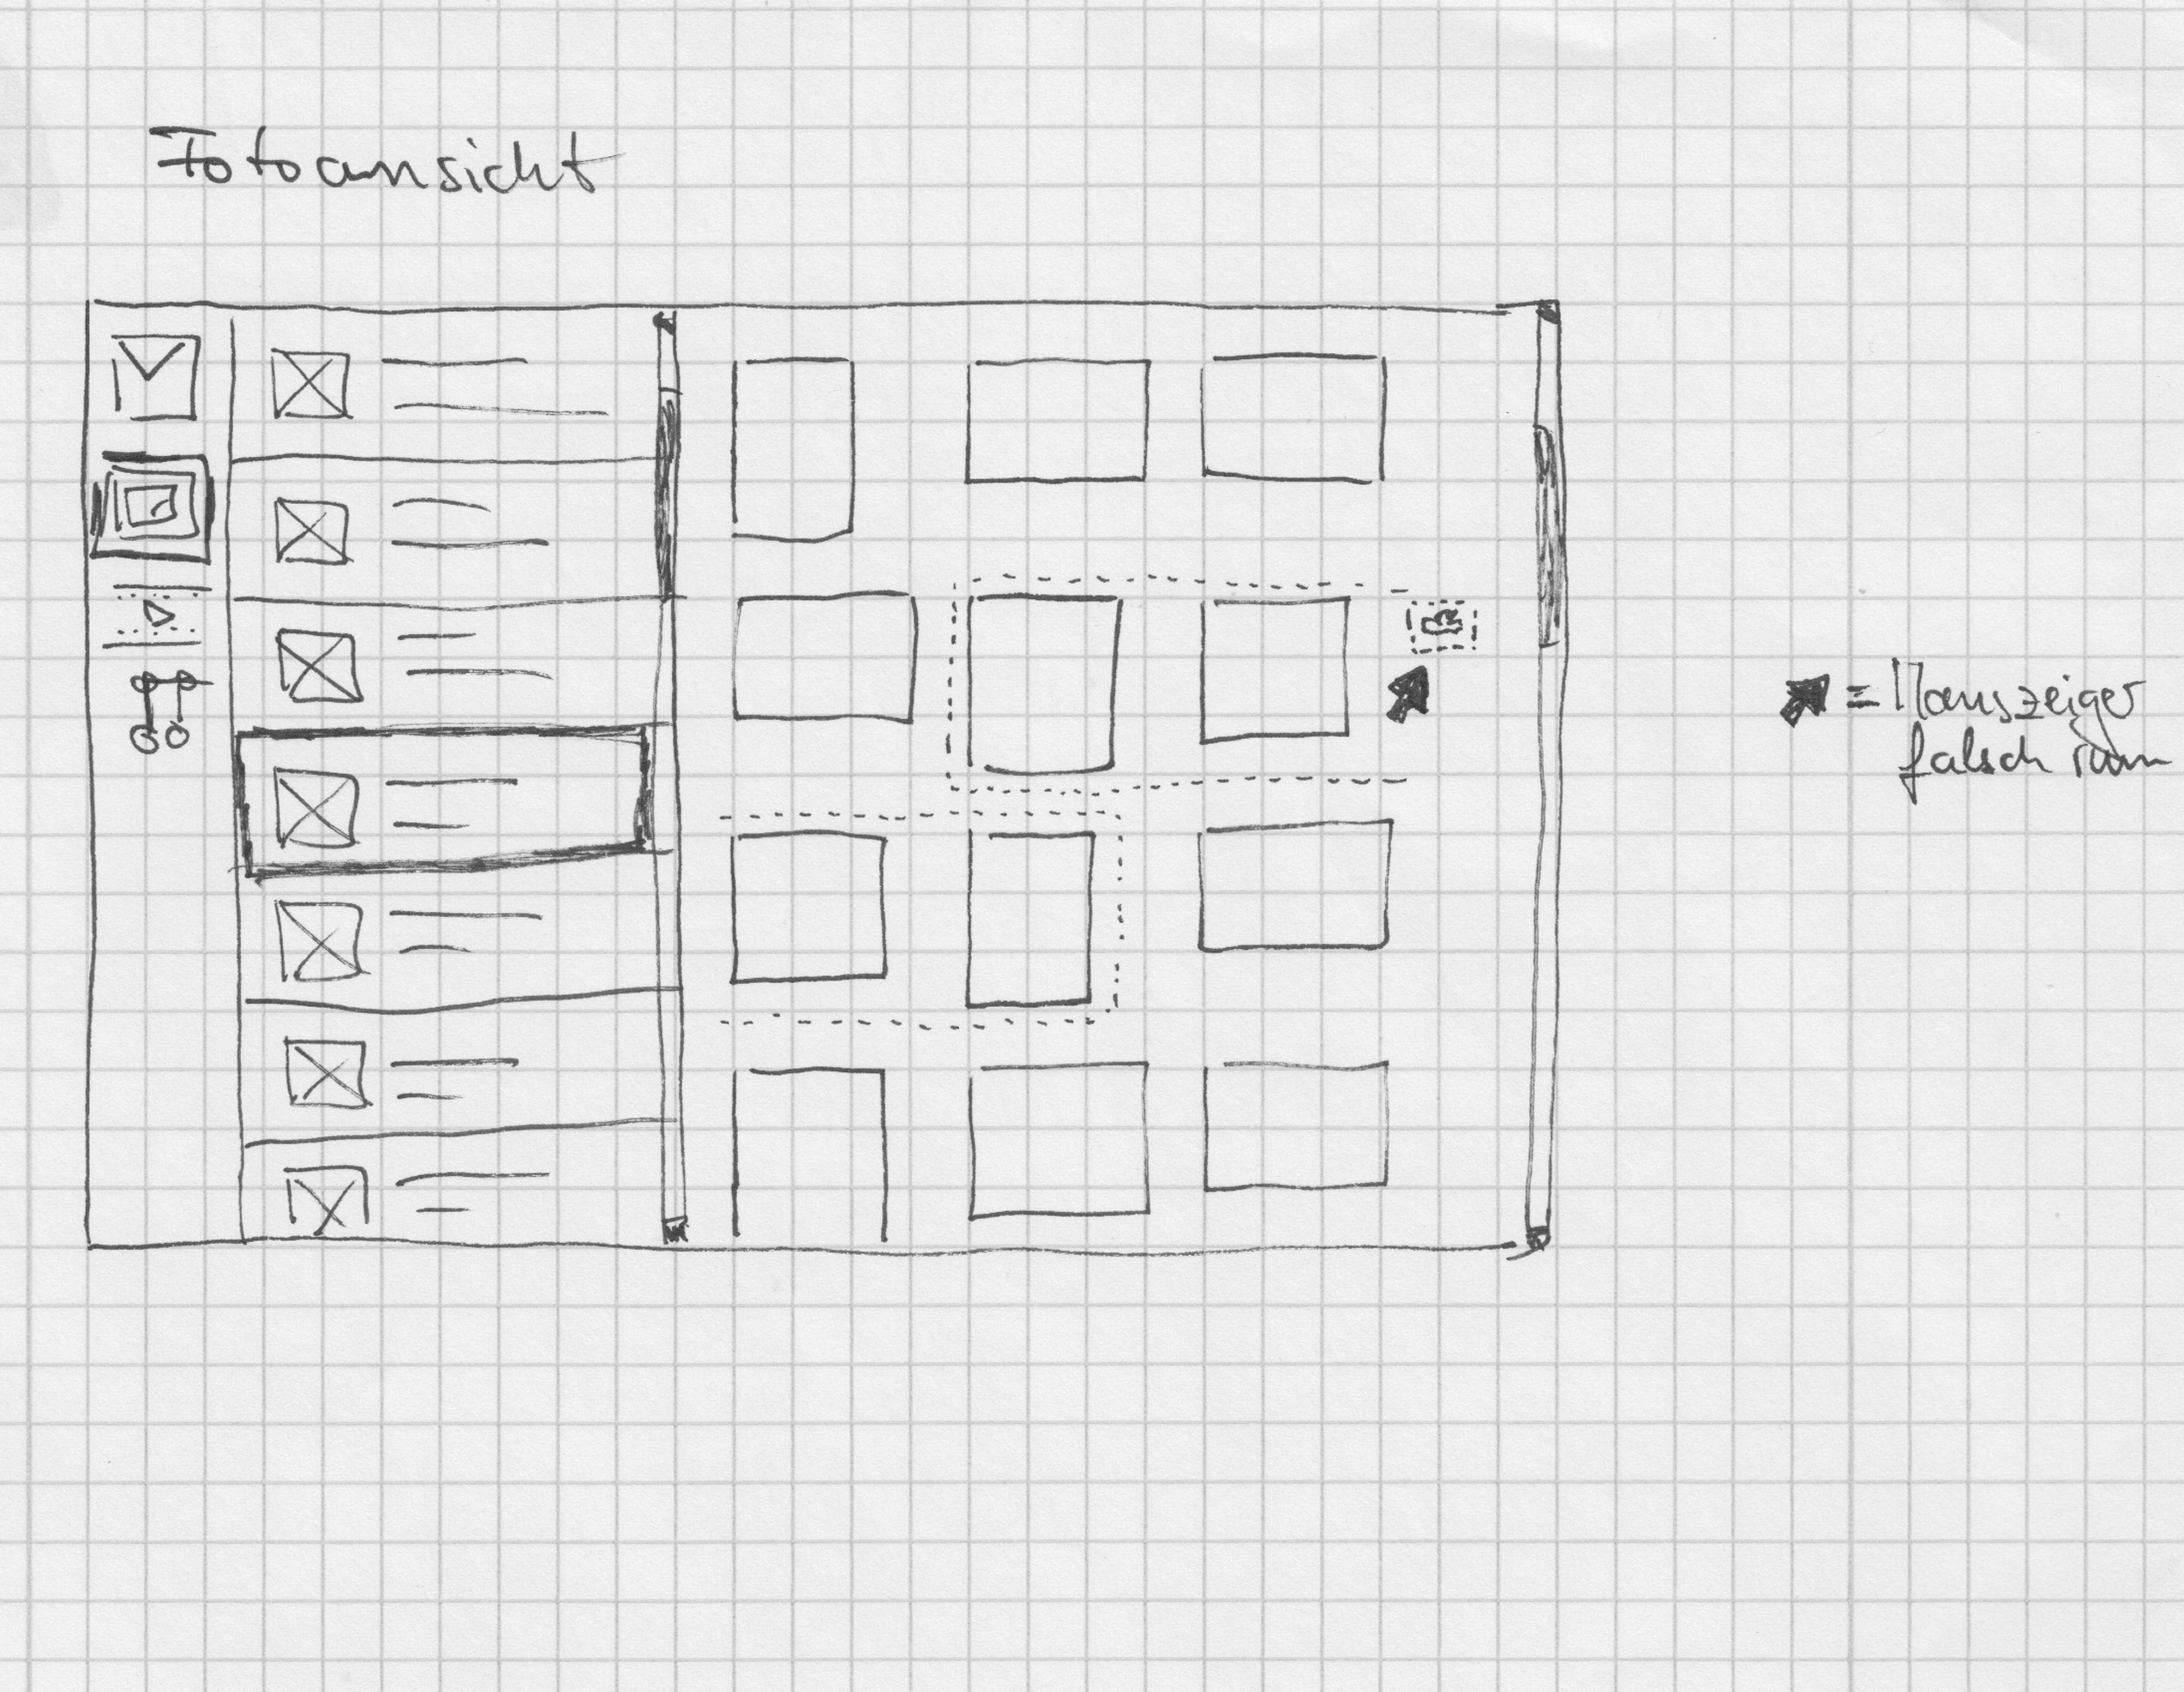 Fotoansicht
= Mauszeiger
falsch rum